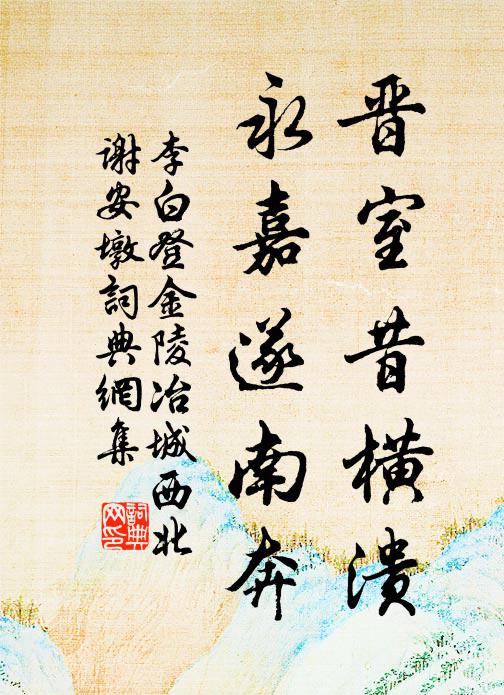 晋室昔横潰
永嘉遂南奔
李白登金陵冶城西北
謝安墩詞典網集
詞典
网印